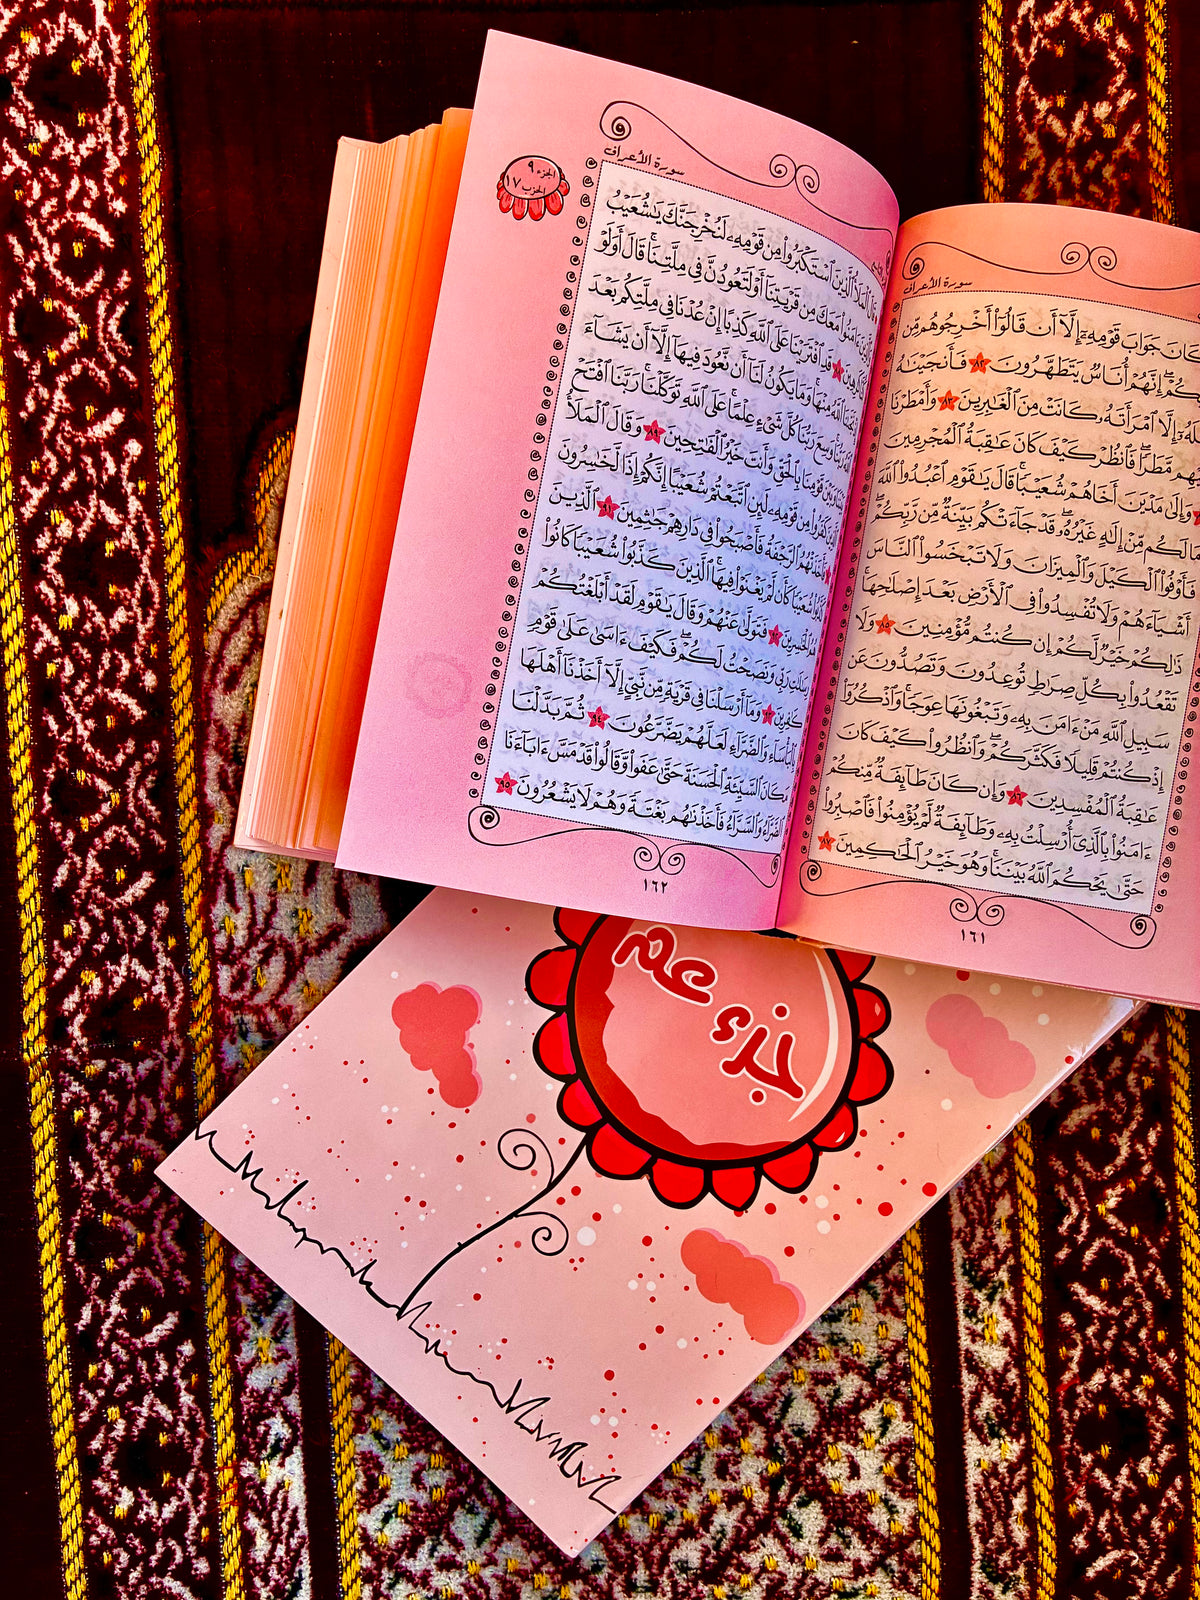 سورة الأعراف
كَانَ جَوَابَ قَوْمِهِۦٓ إِلَّآ أَن قَالُوٓا۟ أَخْرِجُوهُم مِّن
إِنَّهُمْ أُنَاسٌ يَتَطَهَّرُونَ ٨٢ فَأَنجَيْنَٰهُ
إِلَّا ٱمْرَأَتَهُۥ كَانَتْ مِنَ ٱلْغَٰبِرِينَ ٨٣ وَأَمْطَرْنَا
مَّطَرًا ۖ فَٱنظُرْ كَيْفَ كَانَ عَٰقِبَةُ ٱلْمُجْرِمِينَ
وَإِلَىٰ مَدْيَنَ أَخَاهُمْ شُعَيْبًا ۗ قَالَ يَٰقَوْمِ ٱعْبُدُوا۟ ٱللَّهَ
مَا لَكُم مِّنْ إِلَٰهٍ غَيْرُهُۥ ۖ قَدْ جَآءَتْكُم بَيِّنَةٌ مِّن رَّبِّكُمْ ۖ
فَأَوْفُوا۟ ٱلْكَيْلَ وَٱلْمِيزَانَ وَلَا تَبْخَسُوا۟ ٱلنَّاسَ
أَشْيَآءَهُمْ وَلَا تُفْسِدُوا۟ فِى ٱلْأَرْضِ بَعْدَ إِصْلَٰحِهَا ۚ
ذَٰلِكُمْ خَيْرٌ لَّكُمْ إِن كُنتُم مُّؤْمِنِينَ ٨٥ وَلَا
تَقْعُدُوا۟ بِكُلِّ صِرَٰطٍ تُوعِدُونَ وَتَصُدُّونَ عَن
سَبِيلِ ٱللَّهِ مَنْ ءَامَنَ بِهِۦ وَتَبْغُونَهَا عِوَجًا ۚ وَٱذْكُرُوٓا۟
إِذْ كُنتُمْ قَلِيلًا فَكَثَّرَكُمْ ۖ وَٱنظُرُوا۟ كَيْفَ كَانَ
عَٰقِبَةُ ٱلْمُفْسِدِينَ ٨٦ وَإِن كَانَ طَآئِفَةٌ مِّنكُمْ
ءَامَنُوا۟ بِٱلَّذِىٓ أُرْسِلْتُ بِهِۦ وَطَآئِفَةٌ لَّمْ يُؤْمِنُوا۟ فَٱصْبِرُوا۟
حَتَّىٰ يَحْكُمَ ٱللَّهُ بَيْنَنَا ۚ وَهُوَ خَيْرُ ٱلْحَٰكِمِينَ ٨٧
١٦١
سورة الأعراف
الجزء ٩
الحزب ١٧
قَالَ ٱلْمَلَأُ ٱلَّذِينَ ٱسْتَكْبَرُوا۟ مِن قَوْمِهِۦ لَنُخْرِجَنَّكَ يَٰشُعَيْبُ
ءَامَنُوا۟ مَعَكَ مِن قَرْيَتِنَآ أَوْ لَتَعُودُنَّ فِى مِلَّتِنَا ۚ قَالَ أَوَلَوْ
قَدِ ٱفْتَرَيْنَا عَلَى ٱللَّهِ كَذِبًا إِنْ عُدْنَا فِى مِلَّتِكُم بَعْدَ
ٱللَّهُ مِنْهَا ۚ وَمَا يَكُونُ لَنَآ أَن نَّعُودَ فِيهَآ إِلَّآ أَن يَشَآءَ
ٱللَّهُ رَبُّنَا ۚ وَسِعَ رَبُّنَا كُلَّ شَىْءٍ عِلْمًا ۚ عَلَى ٱللَّهِ تَوَكَّلْنَا ۚ رَبَّنَا ٱفْتَحْ
بَيْنَنَا وَبَيْنَ قَوْمِنَا بِٱلْحَقِّ وَأَنتَ خَيْرُ ٱلْفَٰتِحِينَ ٨٩ وَقَالَ ٱلْمَلَأُ
ٱلَّذِينَ كَفَرُوا۟ مِن قَوْمِهِۦ لَئِنِ ٱتَّبَعْتُمْ شُعَيْبًا إِنَّكُمْ إِذًا لَّخَٰسِرُونَ
فَأَخَذَتْهُمُ ٱلرَّجْفَةُ فَأَصْبَحُوا۟ فِى دَارِهِمْ جَٰثِمِينَ ٩١ ٱلَّذِينَ
كَذَّبُوا۟ شُعَيْبًا كَأَن لَّمْ يَغْنَوْا۟ فِيهَا ۚ ٱلَّذِينَ كَذَّبُوا۟ شُعَيْبًا كَانُوا۟
هُمُ ٱلْخَٰسِرِينَ ٩٢ فَتَوَلَّىٰ عَنْهُمْ وَقَالَ يَٰقَوْمِ لَقَدْ أَبْلَغْتُكُمْ
رِسَٰلَٰتِ رَبِّى وَنَصَحْتُ لَكُمْ ۖ فَكَيْفَ ءَاسَىٰ عَلَىٰ قَوْمٍ
كَٰفِرِينَ ٩٣ وَمَآ أَرْسَلْنَا فِى قَرْيَةٍ مِّن نَّبِىٍّ إِلَّآ أَخَذْنَآ أَهْلَهَا
بِٱلْبَأْسَآءِ وَٱلضَّرَّآءِ لَعَلَّهُمْ يَضَّرَّعُونَ ٩٤ ثُمَّ بَدَّلْنَا
مَكَانَ ٱلسَّيِّئَةِ ٱلْحَسَنَةَ حَتَّىٰ عَفَوا۟ وَّقَالُوا۟ قَدْ مَسَّ ءَابَآءَنَا
ٱلضَّرَّآءُ وَٱلسَّرَّآءُ فَأَخَذْنَٰهُم بَغْتَةً وَهُمْ لَا يَشْعُرُونَ ٩٥
١٦٢
جزء عم